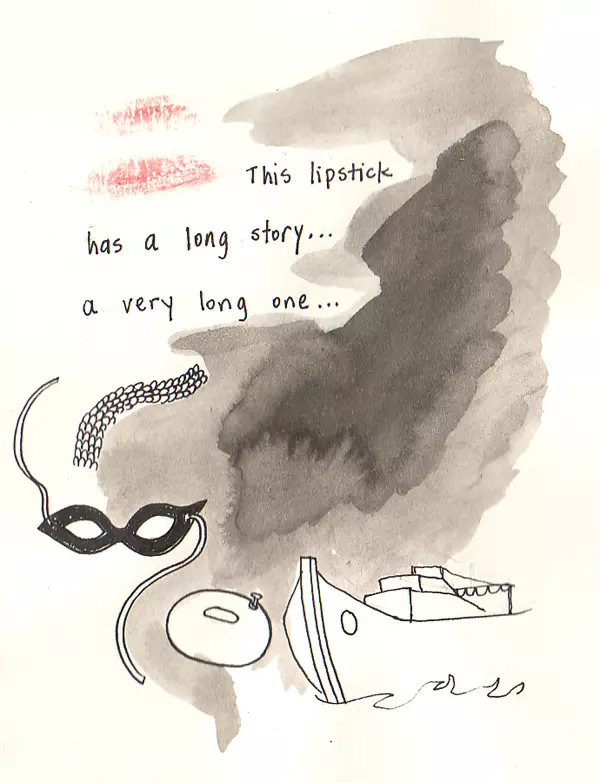 This lipstick
has a long story...
a very long one...